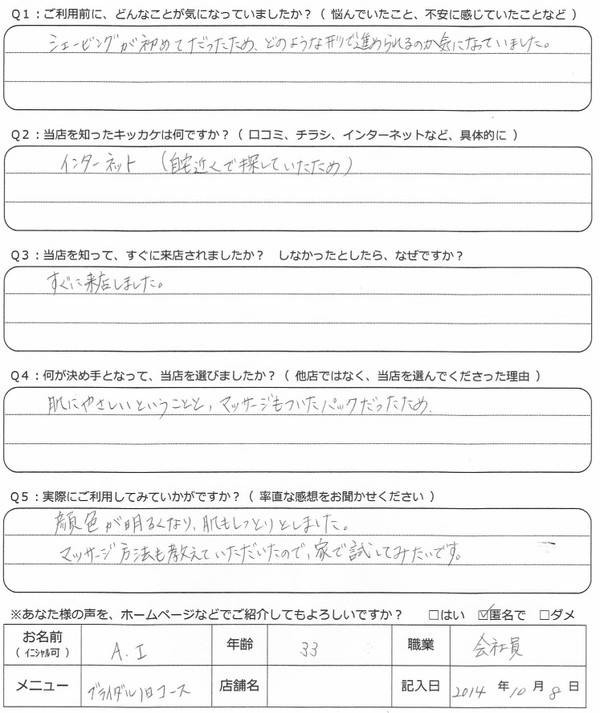 Q1:ご利用前に、どんなことが気になっていましたか?( 悩んでいたこと、不安に感じていたことなど )
シェービングが初めてだったため、どのような形で進められるのか気になっていました。
Q2:当店を知ったキッカケは何ですか?( 口コミ、チラシ、インターネットなど、具体的に )
インターネット (自宅近くで探していたため)
Q3:当店を知って、すぐに来店されましたか? しなかったとしたら、なぜですか?
すぐに来店しました。
Q4:何が決め手となって、当店を選びましたか?( 他店ではなく、当店を選んでくださった理由 )
肌にやさしいということと、マッサージもついたパックだったため.
Q5:実際にご利用してみていかがですか?( 率直な感想をお聞かせください )
顔色が明るくなり、肌もしっとりとしました。
マッサージ方法も教えていただいたので、家で試してみたいです。
※あなた様の声を、ホームページなどでご紹介してもよろしいですか? □はい ☑匿名で □ダメ
お名前 (イニシャル可) A.I 年齢 33 職業 会社員
メニュー ブライダル1日コース 店舗名 記入日 2014年10月8日